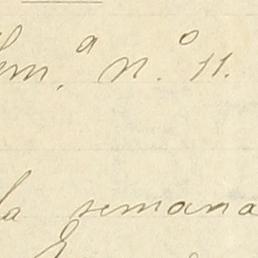 em.ª n.º 11.
la semana